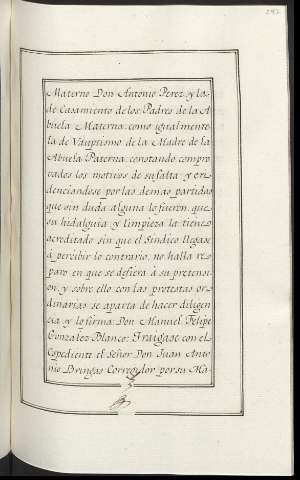 Materno Don Antonio Perez y la-
de Casamiento de los Padres de la A
buela Materna como igualmente
la de Vauptismo de la Madre de la
Abuela Paterna constando compro
vados los motivos de su falta y evi
denciandose por las demas partidas
que sin duda alguna lo fueron, que
su hidalguia y limpieza la tiene
acreditado sin que el Sindico llegase
á percibir lo contrario, no halla re
paro en que se defiera á su pretensi
on, y sobre ello con las protestas or
dinarias se aparta de hacer diligen
cia y lo firma Don Manuel Felipe
Gonzalez Blanco: Traigase con el
Expediente el Señor Don Juan Anto
nio Bringas Corregidor por su Ma-